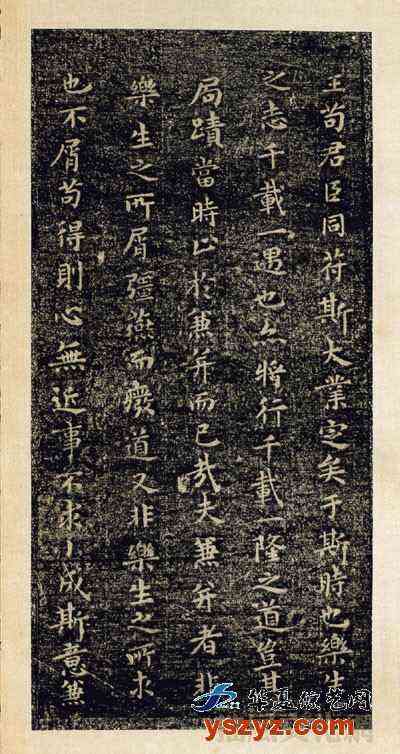 王苟君臣同符斯大業定矣于斯時也樂生
之志千載一遇也亦將行千載一隆之道豈其
局蹟當時止於兼并而已哉夫兼并者非
樂生之所屑彊燕而廢道又非樂生之所求
也不屑苟得則心無近事不求小成斯意兼
yszyz.com